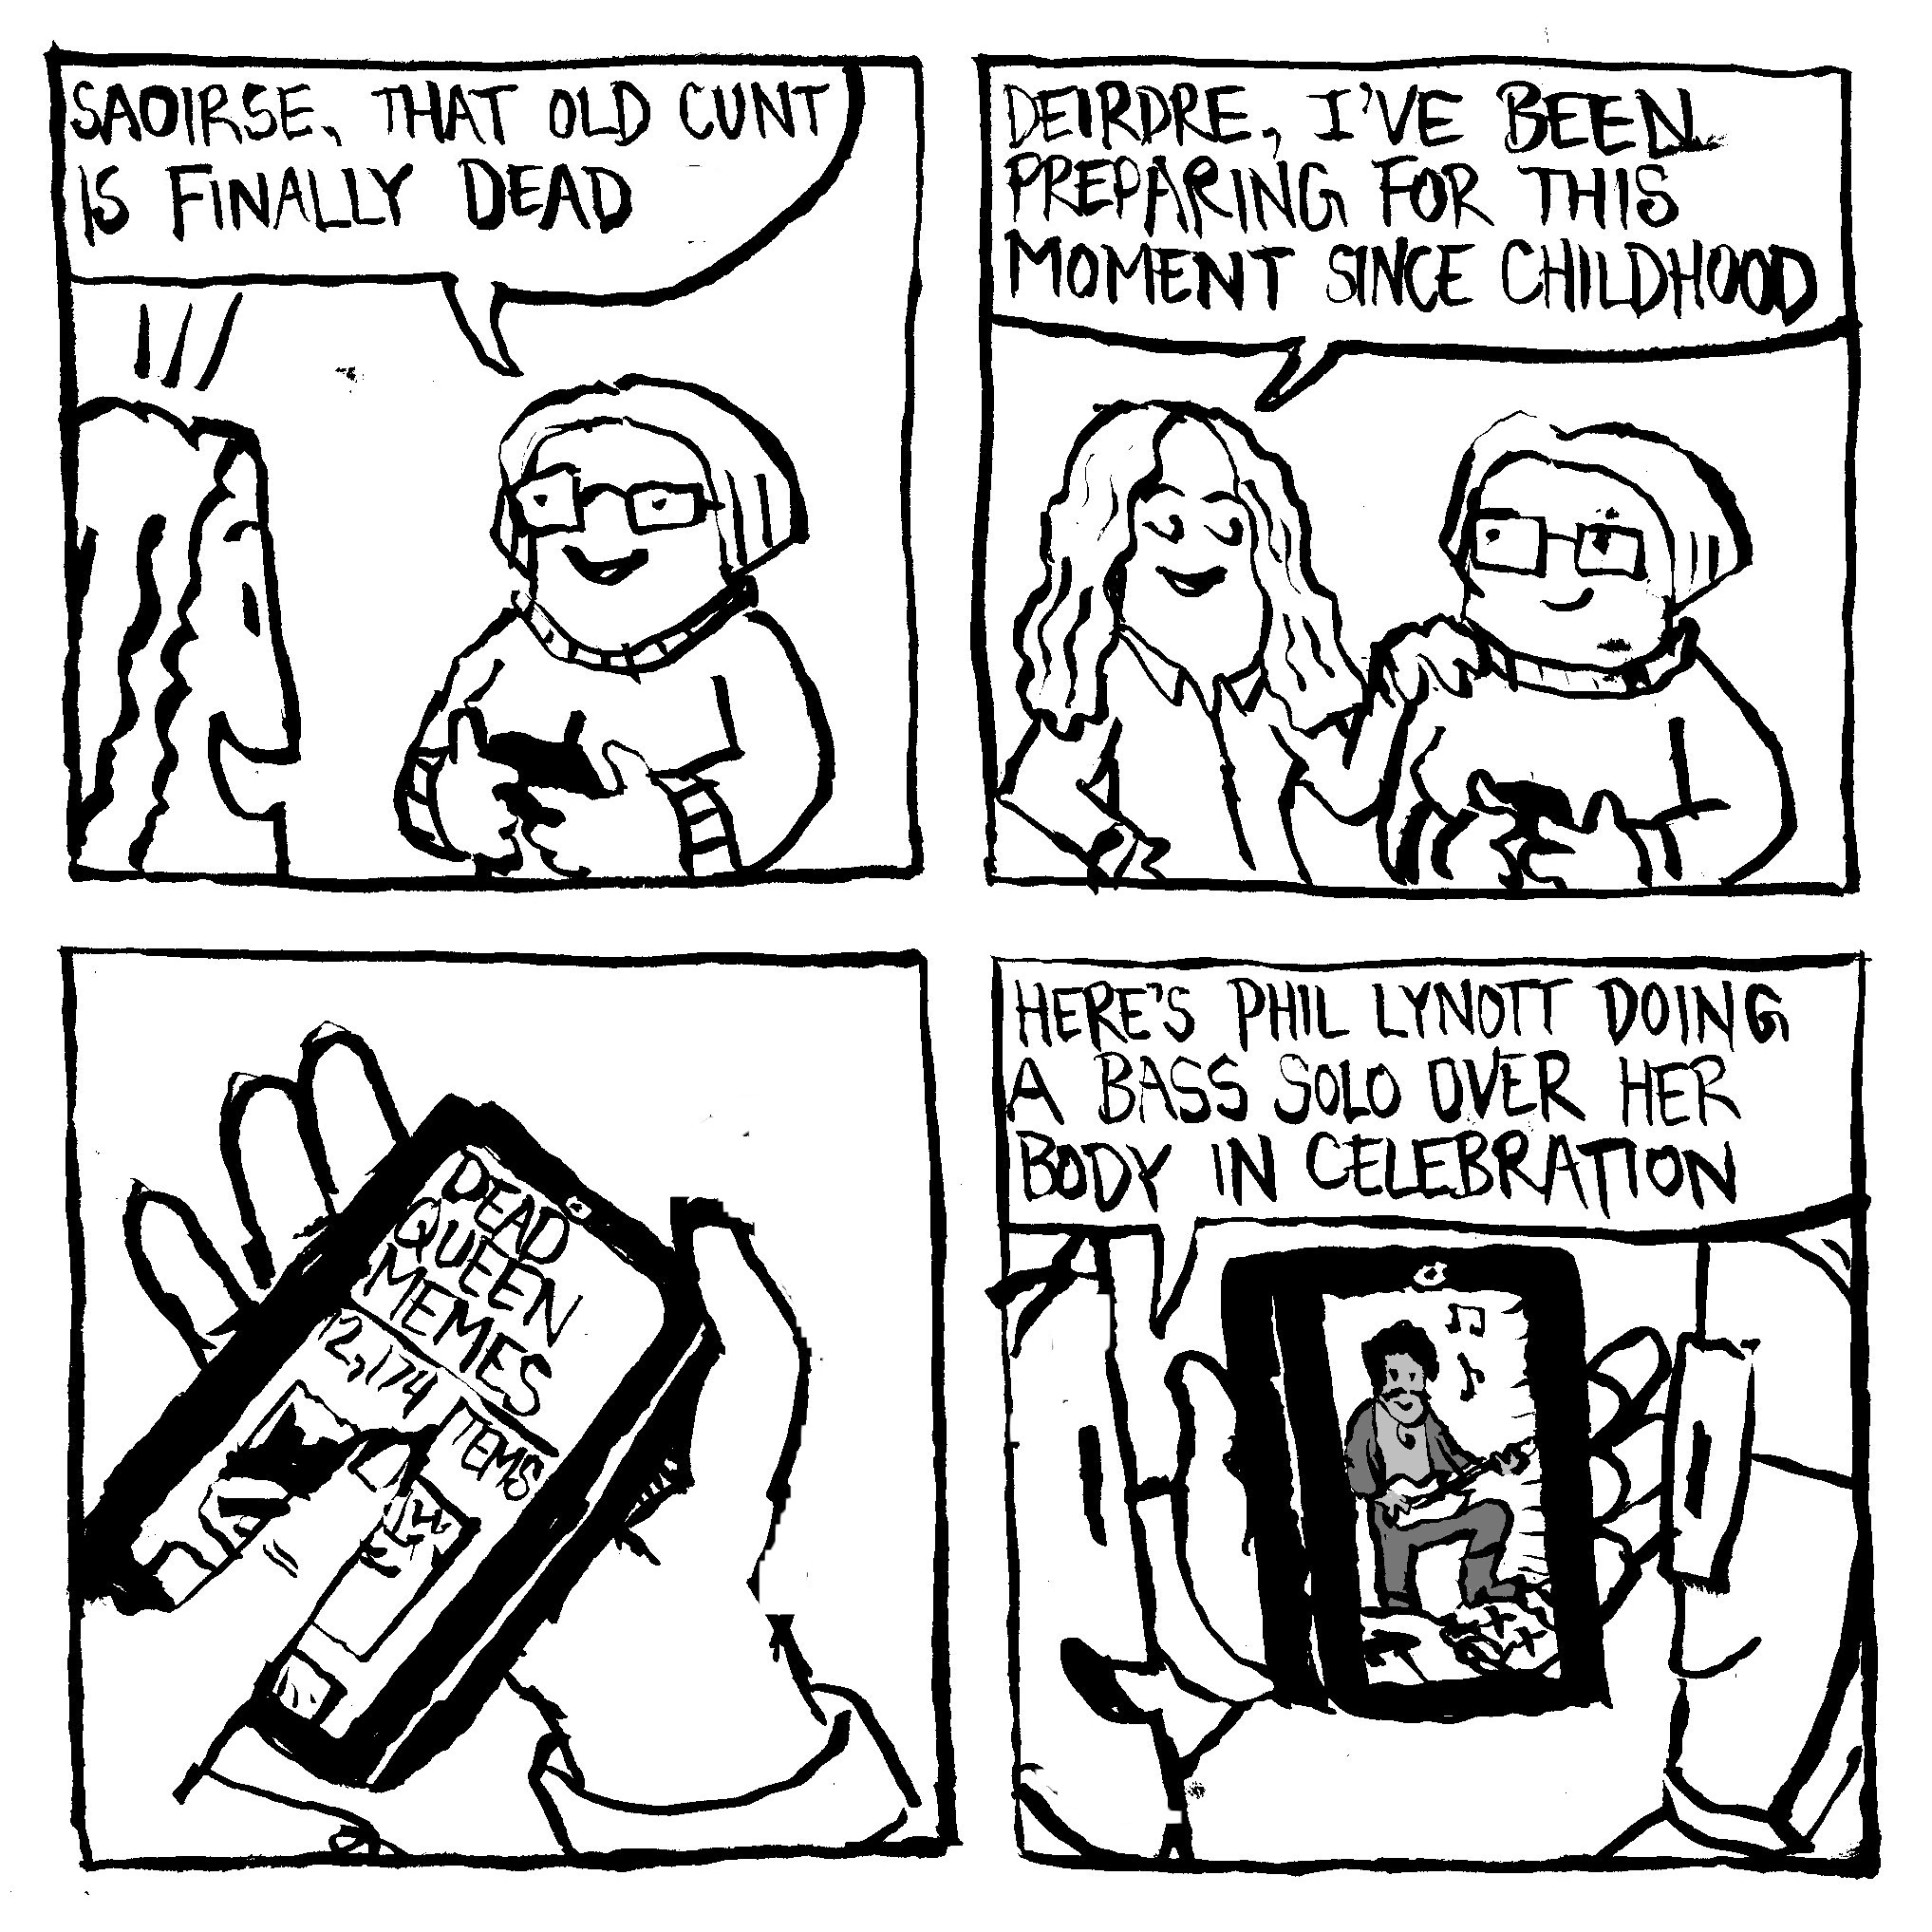 SAOIRSE, THAT OLD CUNT
IS FINALLY DEAD
DEIRDRE, I'VE BEEN
PREPARING FOR THIS
MOMENT SINCE CHILDHOOD
DEAD
QUEEN
MEMES
12,174 ITEMS
HERE'S PHIL LYNOTT DOING
A BASS SOLO OVER HER
BODY IN CELEBRATION